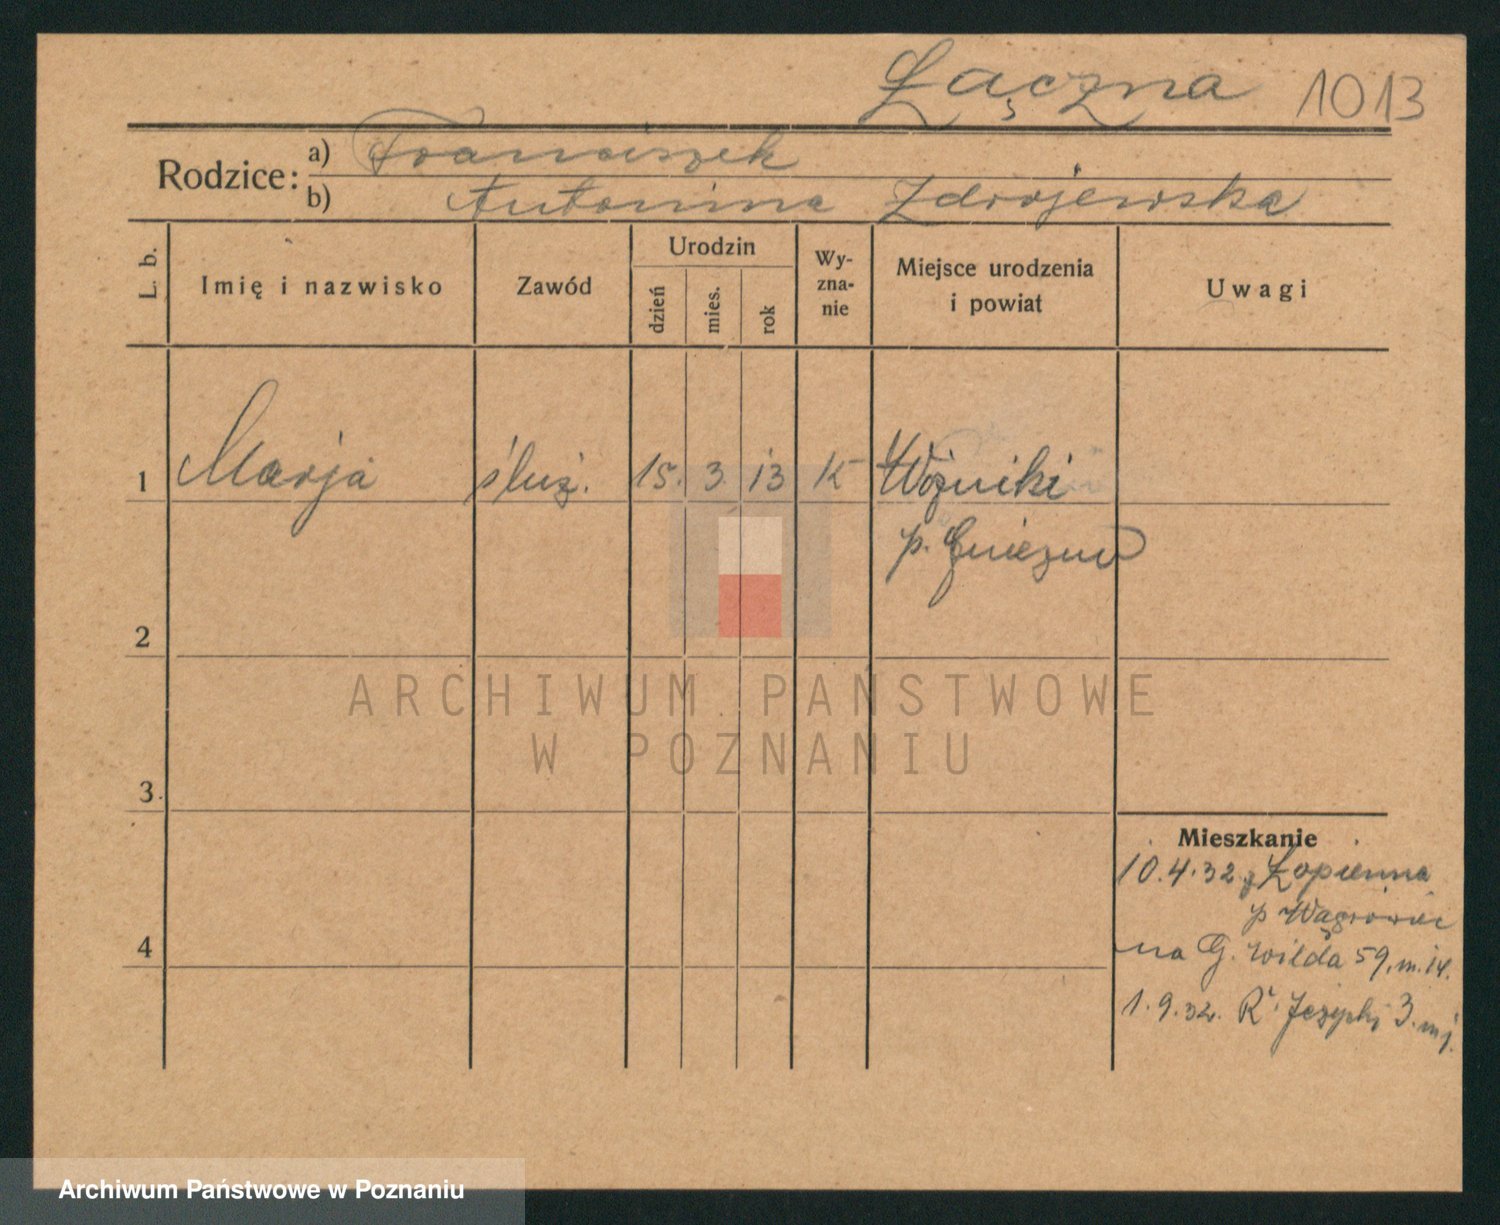 Łączna 1013
Rodzice: a) Franciszek
b) Antonina Zdrojewska
L. b.
Imię i nazwisko
Zawód
Urodzin
dzień
mies.
rok
Wy-
zna-
nie
Miejsce urodzenia
i powiat
Uwagi
1 Marja służ. 15. 3. 13 K Woźniki
p. Gniezno
2
3
4
ARCHIWUM PAŃSTWOWE
W POZNANIU
Mieszkanie
10.4.32 z Łopienna
p Wągrowiec
na G. Wilda 59, m. 14.
1.9.32. 3. m
Archiwum Państwowe w Poznaniu